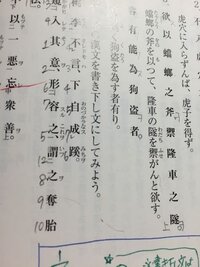 虎穴に入らずんば、虎子を得ず。
欲以蟷螂之斧禦隆車之隧
蟷螂の斧を以つて、隆車の隧を禦がんと欲す。
有能為狗盗者。
狗盗を為す者有り。
漢文を書き下し文にしてみよう。
李不言、下自成蹊。
入其意形容之謂之奪胎
以一悪忘衆善。